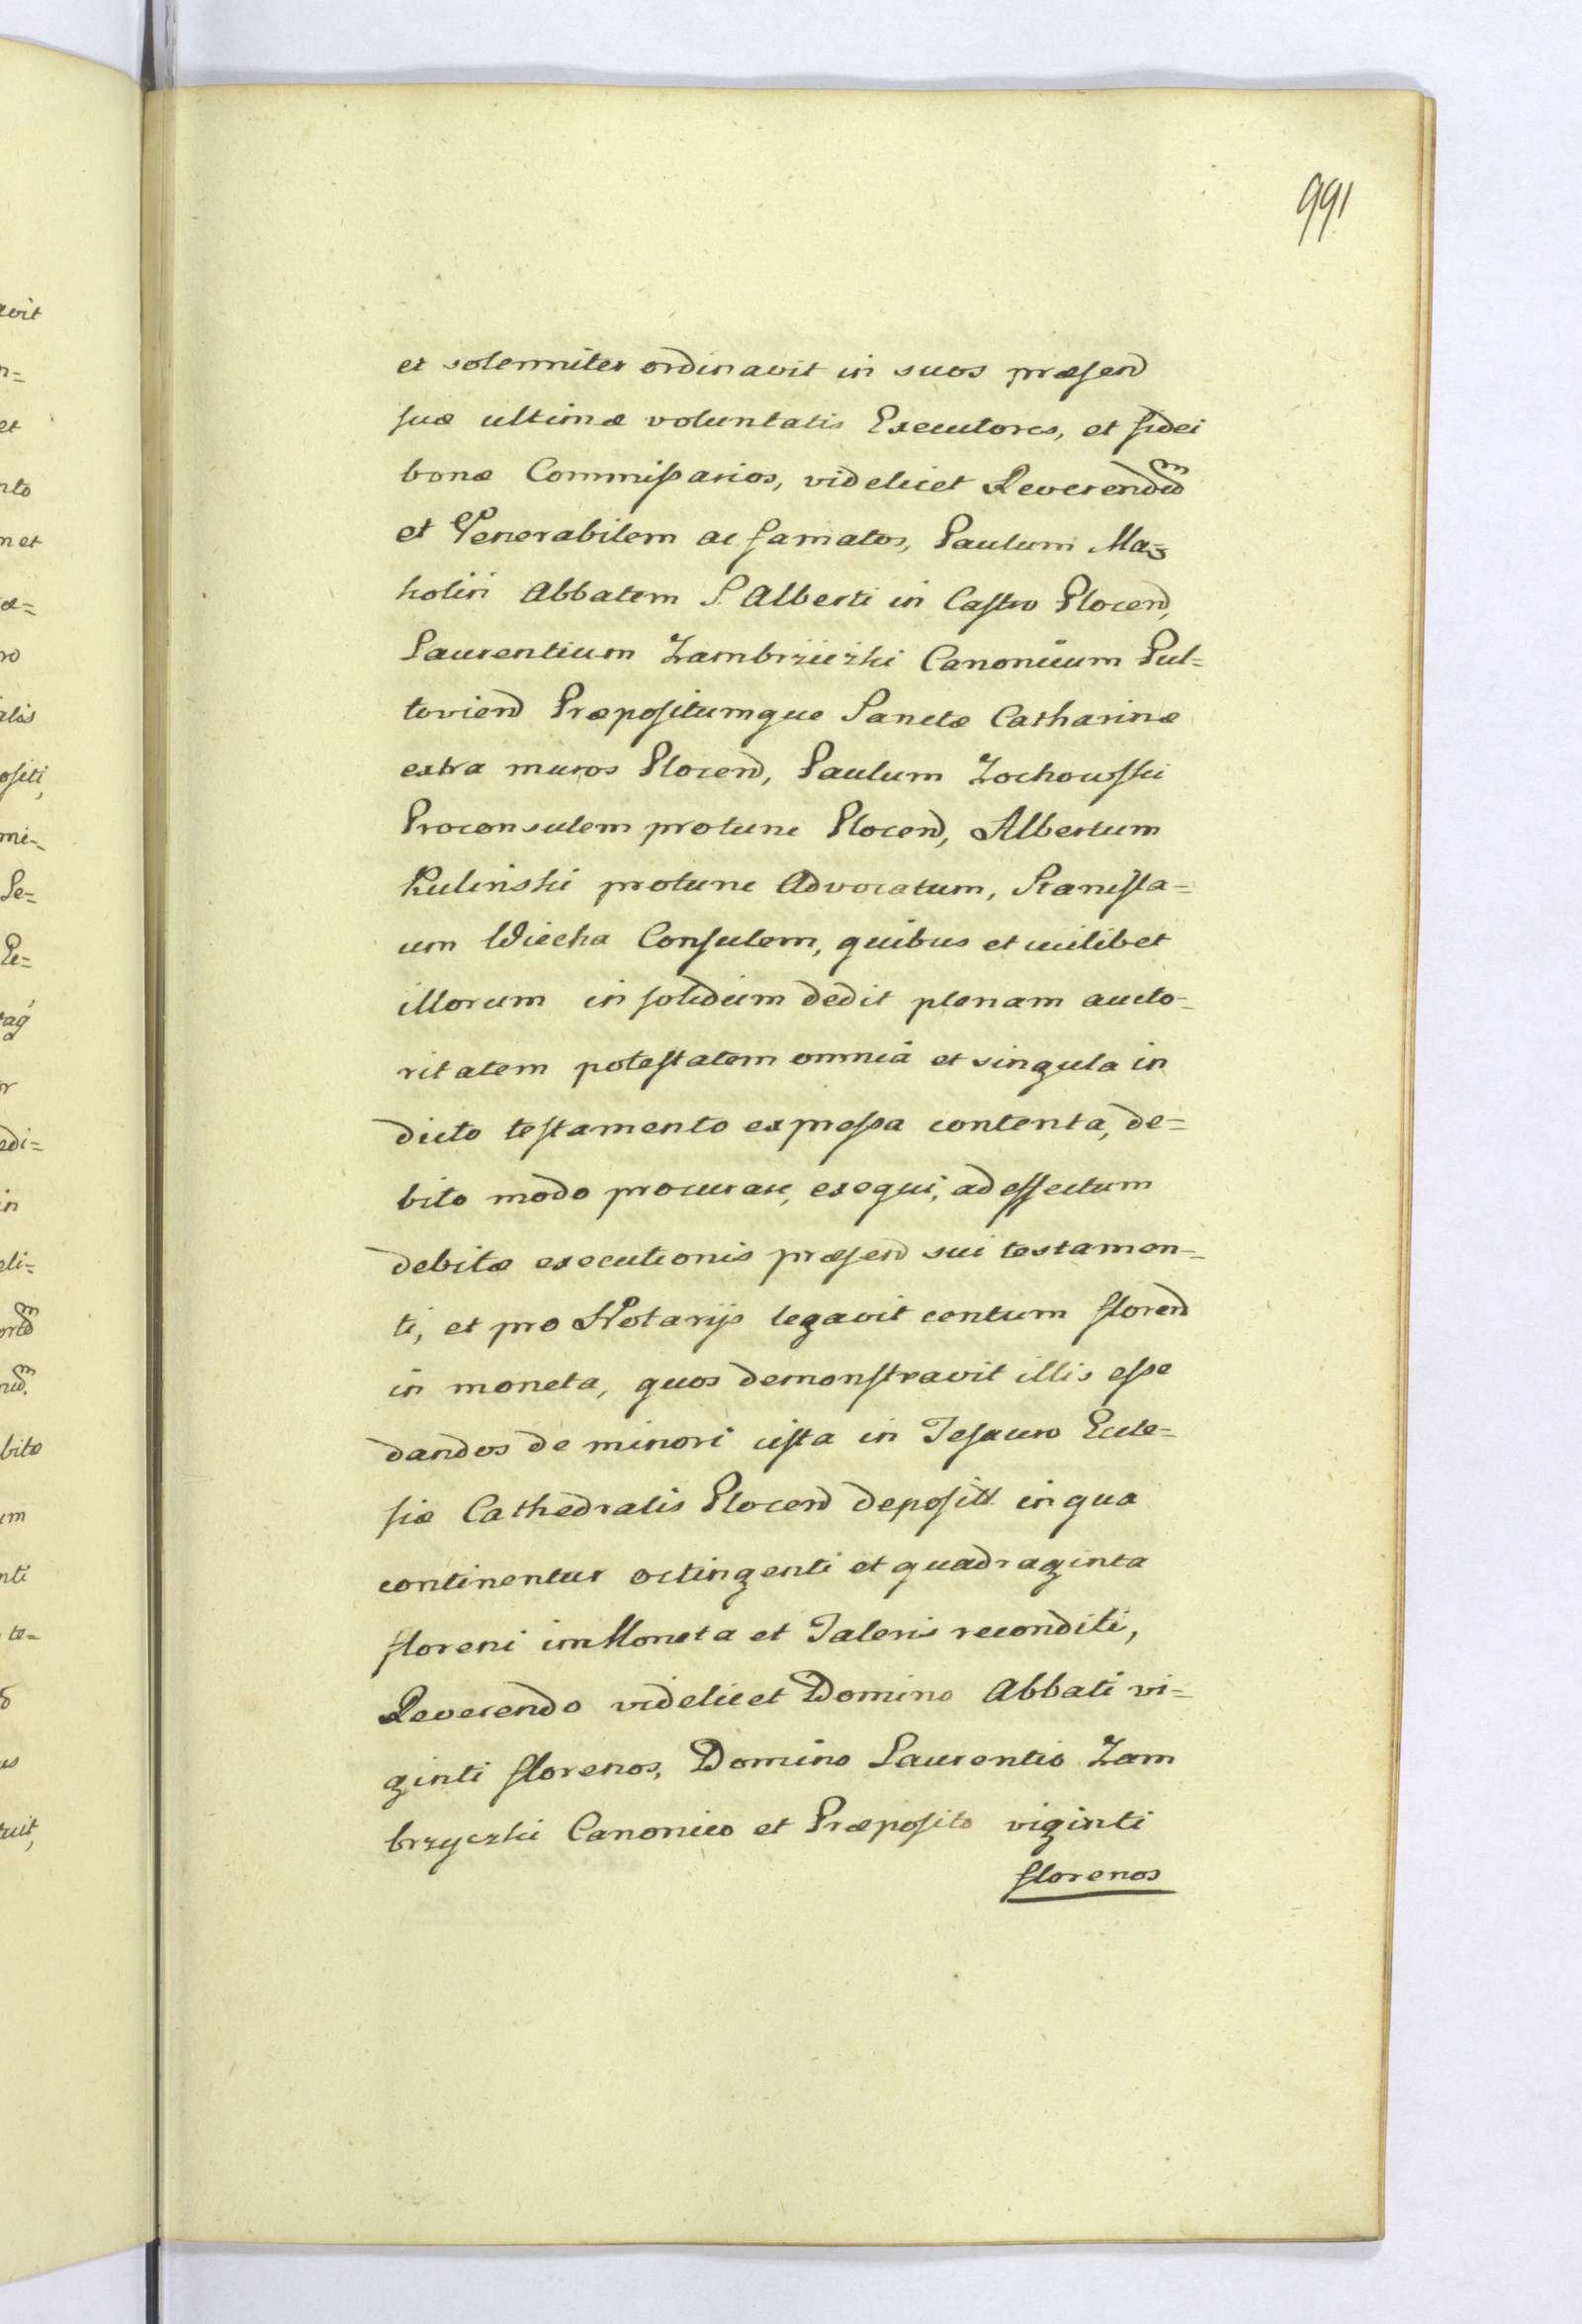 991
et solenniter ordinavit in suos præsen
suæ ultimæ voluntatis Executores, et fidei
bonæ Commissarios, videlicet Reverendum
et Venerabilem ac famatos, Paulum Ma=
kolin Abbatem S. Alberti in Castro Plocen,
Laurentium Zambrziczki Canonicum Pul=
tovien Præpositumque Sanctæ Catharinæ
extra muros Plocen, Paulum Zochowski
Proconsulem protunc Plocen, Albertum
Kulinski protunc Advocatum, Stanisla=
um Wiecha Consulem, quibus et cuilibet
illorum in solidum dedit plenam aucto-
ritatem potestatem omnia et singula in
dicto testamento expressa contenta, de=
bito modo procurare, exequi, ad effectum
debitæ executionis præsen sui testamen-
ti, et pro Notarijs legavit centum floren
in moneta, quos demonstravit illis esse
dandos de minori cista in Tesauro Eccle=
siæ Cathedralis Plocen deposit in qua
continentur octingenti et quadraginta
floreni in Moneta et Taleris reconditi,
Reverendo videlicet Domino Abbati vi=
ginti florenos, Domino Laurentio Zam
brzyczki Canonico et Præposito viginti
florenos
avit
n=
et
nto
m et
æ=
ro
alis
ositi,
mi-
Se=
edi=
in
eli=
bitæ
um
nti
te-
us
tuit,